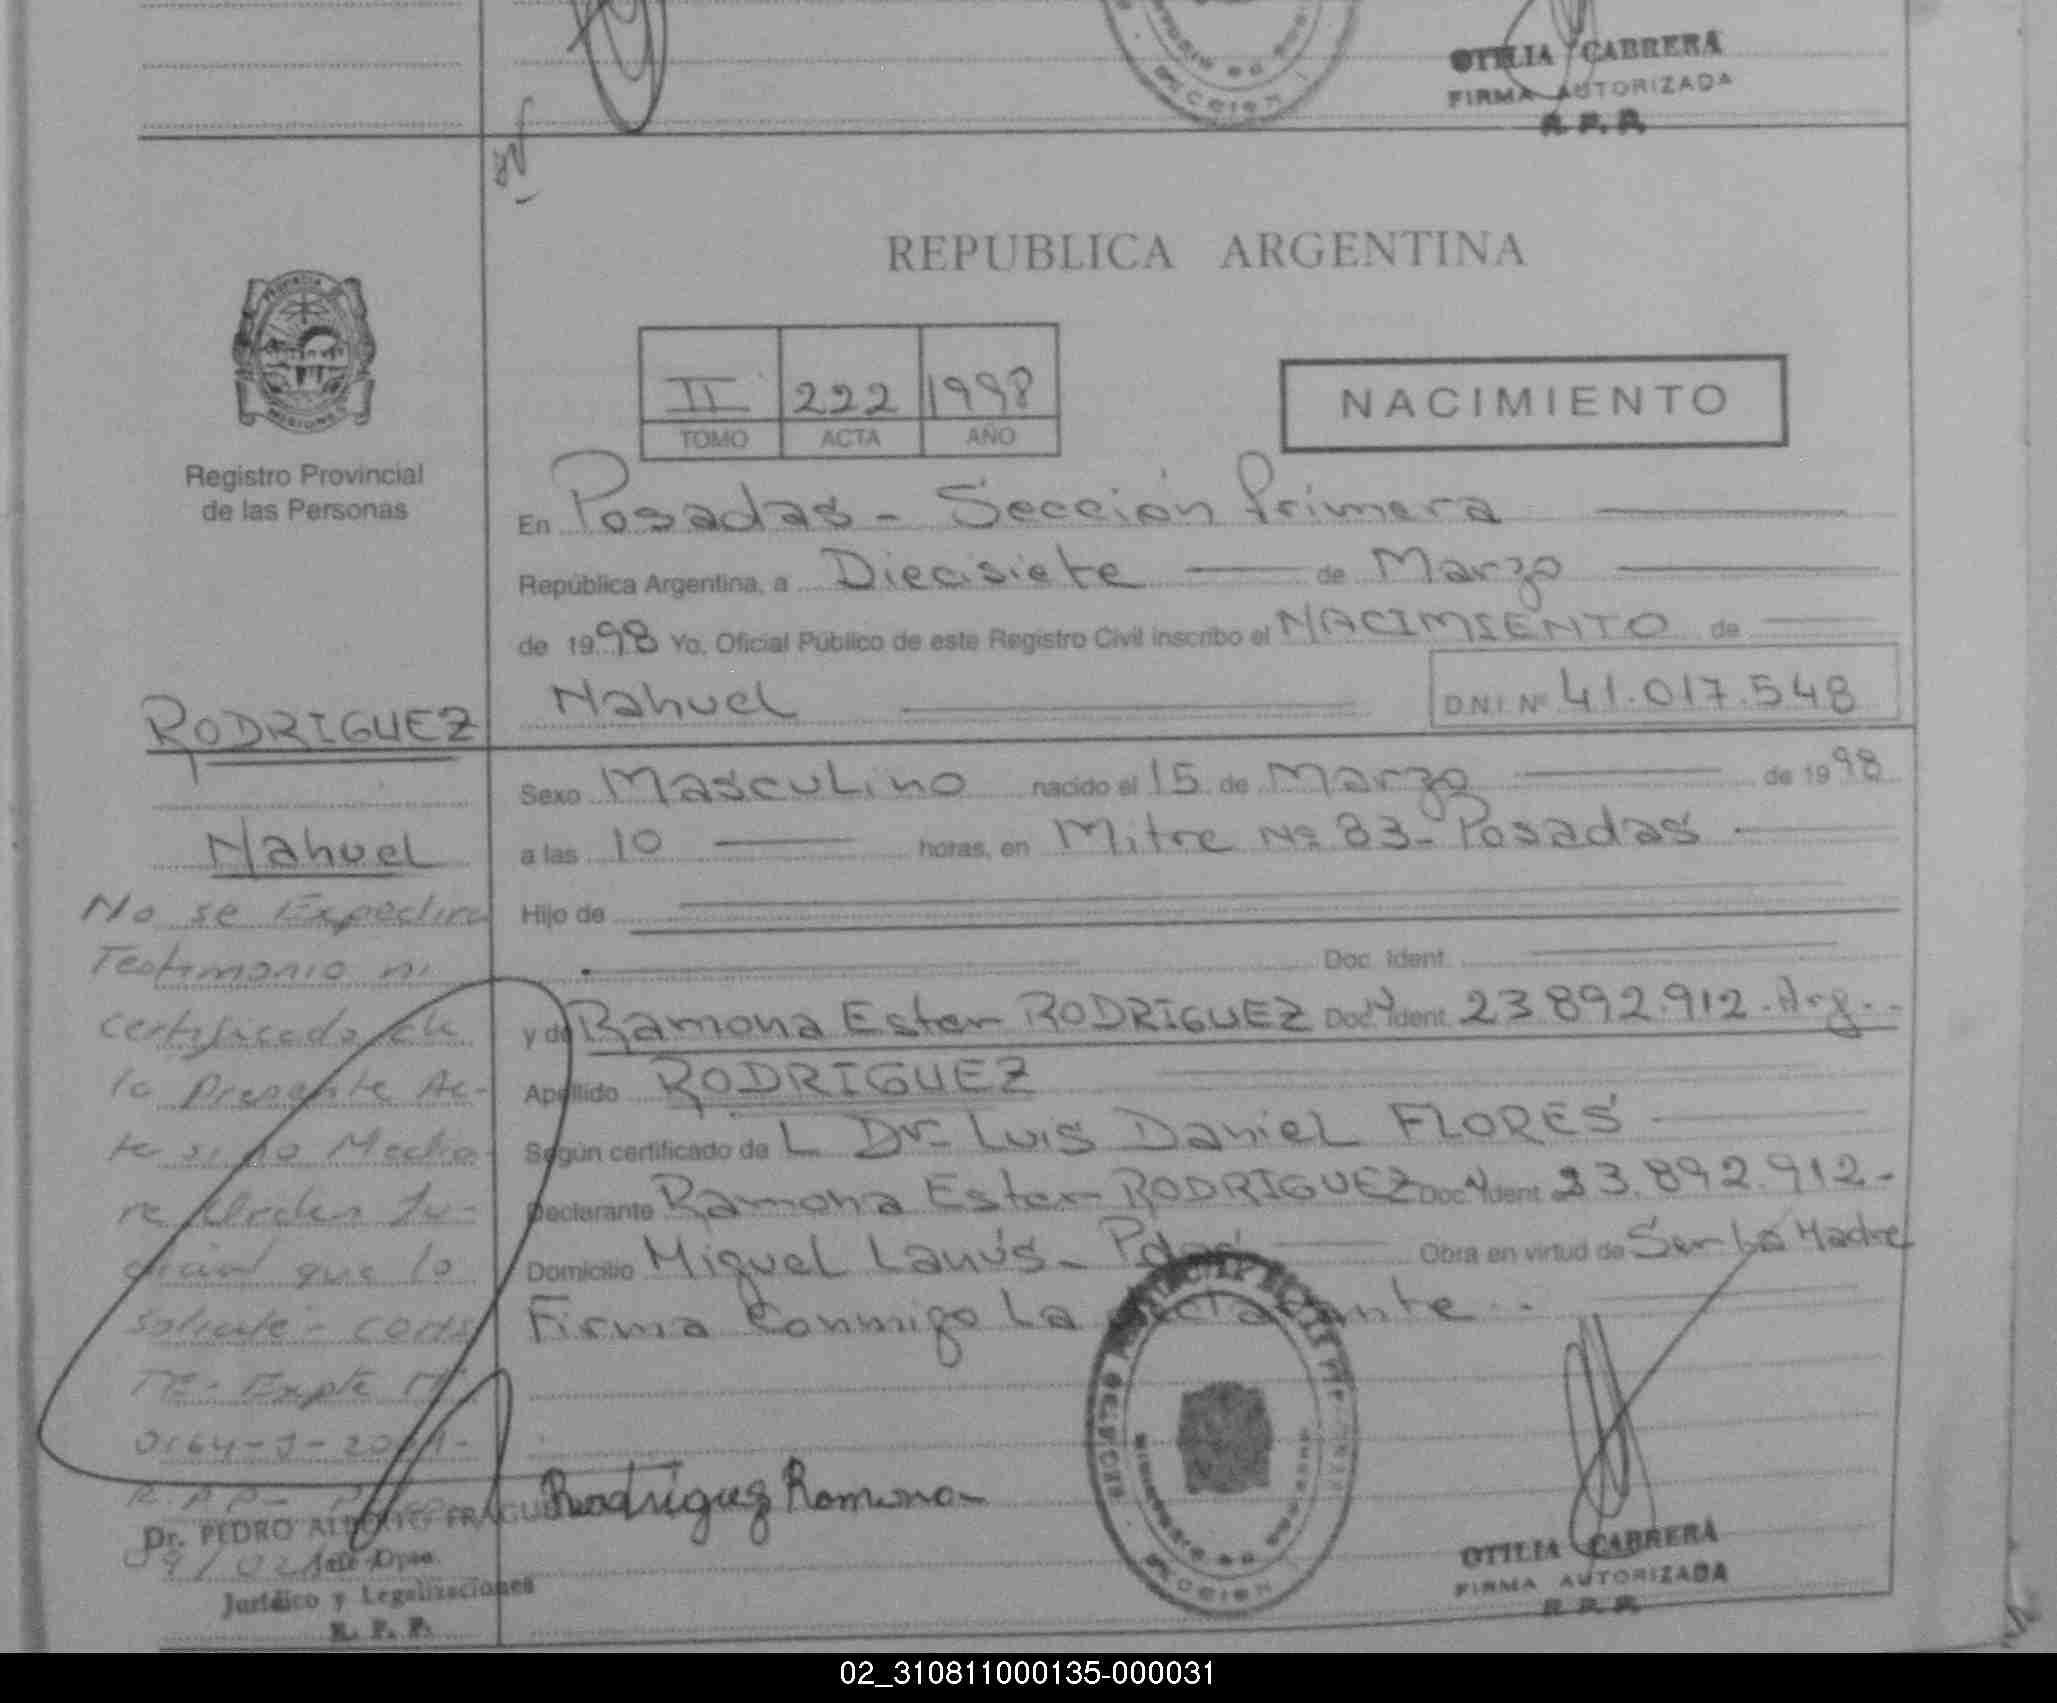 OTILIA CABRERA
FIRMA AUTORIZADA
R. P. P.
REPUBLICA ARGENTINA
II 222 1998
TOMO ACTA AÑO
NACIMIENTO
Registro Provincial
de las Personas
En Posadas - Sección Primera
República Argentina, a Diecisiete de Marzo
de 1998 Yo, Oficial Público de este Registro Civil inscribo el NACIMIENTO de
Nahuel D.N.I. Nº 41.017.548
RODRIGUEZ
Nahuel
Sexo Masculino nacido el 15 de Marzo de 1998
a las 10 horas, en Mitre Nº 83 - Posadas
Hijo de
Doc. Ident.
y de Ramona Ester RODRIGUEZ Doc. Ident. 23.892.912 - Arg.
Apellido RODRIGUEZ
Según certificado de L Dr. Luis Daniel FLORES
Declarante Ramona Ester RODRIGUEZ Doc. Ident. 23.892.912 -
Domicilio Miguel Lanús - Pdas Obra en virtud de Ser La Madre
Firma Conmigo La Declarante
No se Expedira
Testimonio ni
certificado de
la Presente Ac-
ta si no Media-
re Orden Ju-
dicial que lo
solicite - CONS
TE - Expte Nº
0164-J-2001-
R.P.P.
Dr. PEDRO ALBERTO
09/02
Jefe Dpto.
Jurídico y Legalizaciones
R. P. P.
Rodríguez Ramona
OTILIA CABRERA
FIRMA AUTORIZADA
R. P. P.
02_310811000135-000031